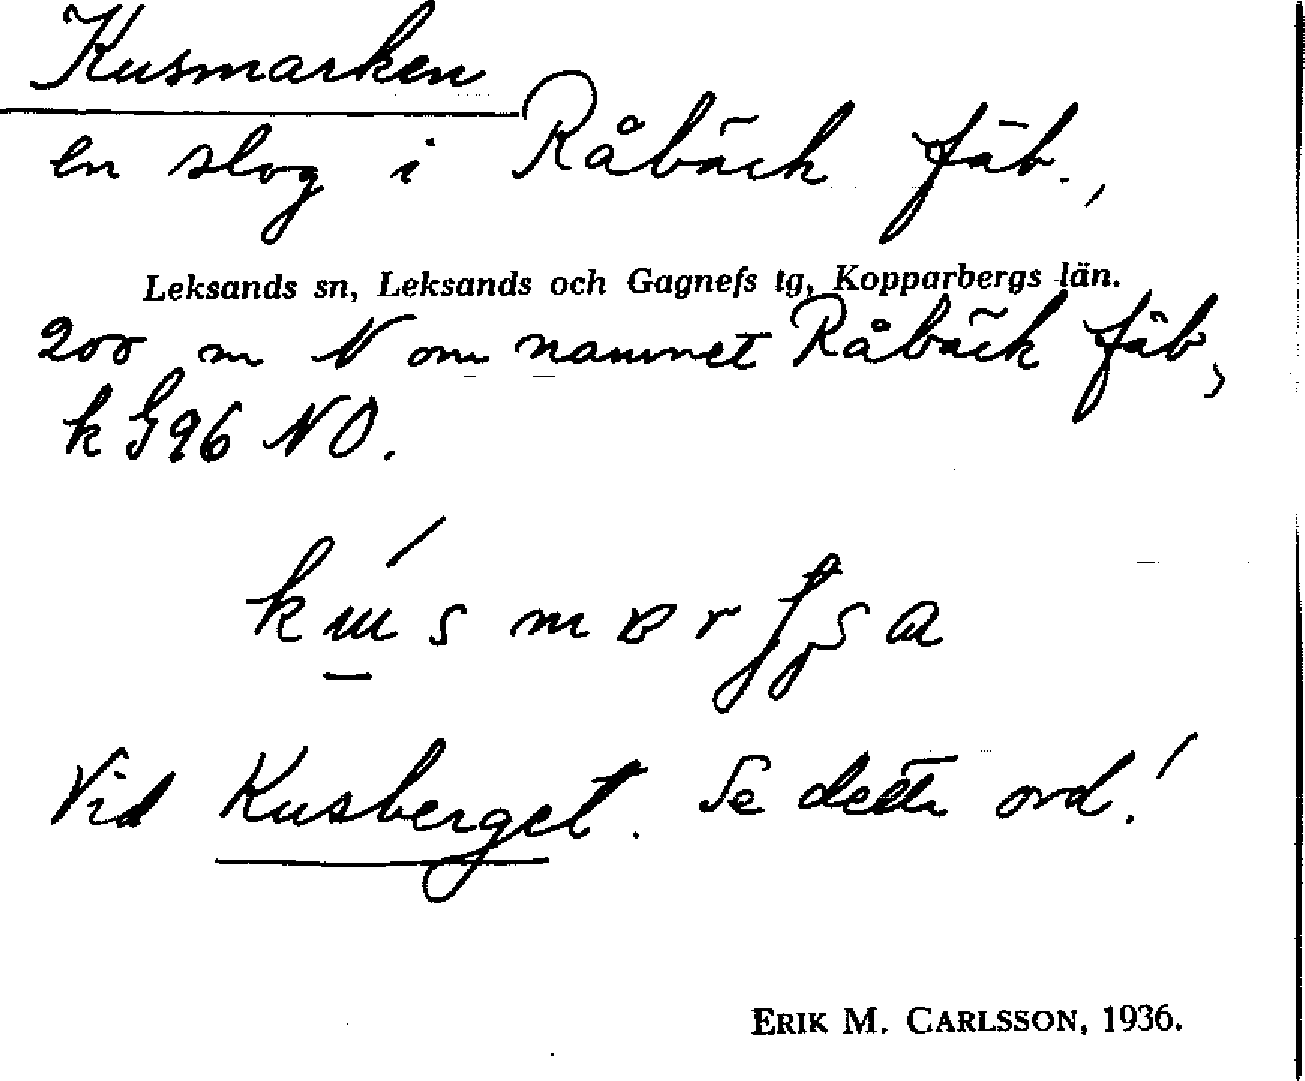 Kusmarken
en slog i Råbäck fäb.,
Leksands sn, Leksands och Gagnefs tg, Kopparbergs län.
200 m N om namnet Råbäck fäb,
k G96 NO.
Vid Kusberget. Se detta ord!
ERIK M. CARLSSON, 1936.